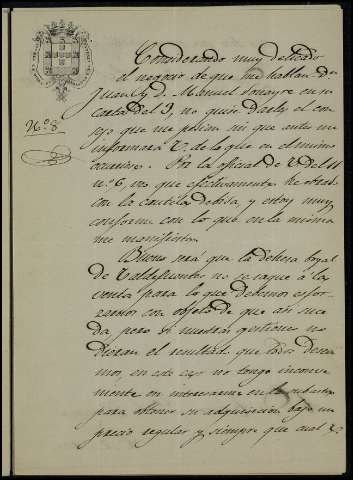 Considerando muy delicado
el negocio de que me hablan Dn
Juan y D. Manuel en su
carta del 3, no quise darles el con-
sejo que me pedian sin que antes me
informara V. de lo que en el mismo
ocurriese. Por la oficial de V. del 11
nº 6, veo que efectivamente ha obrado
con la cautela debida, y estoy muy
conforme con lo que en la misma
me manifiesta.
Nº 8
Bueno será que la dehesa boyal
de Valdefuentes no se saque a la
venta para lo que debemos esfor-
zarnos con objeto de que asi suce-
da pero si nuestras gestiones no
dieran el resultado que todos desea-
mos, en este caso no tengo inconve-
niente en interesarme en la subasta
para obtener su adquisicion bajo un
precio regular y siempre que cual V.